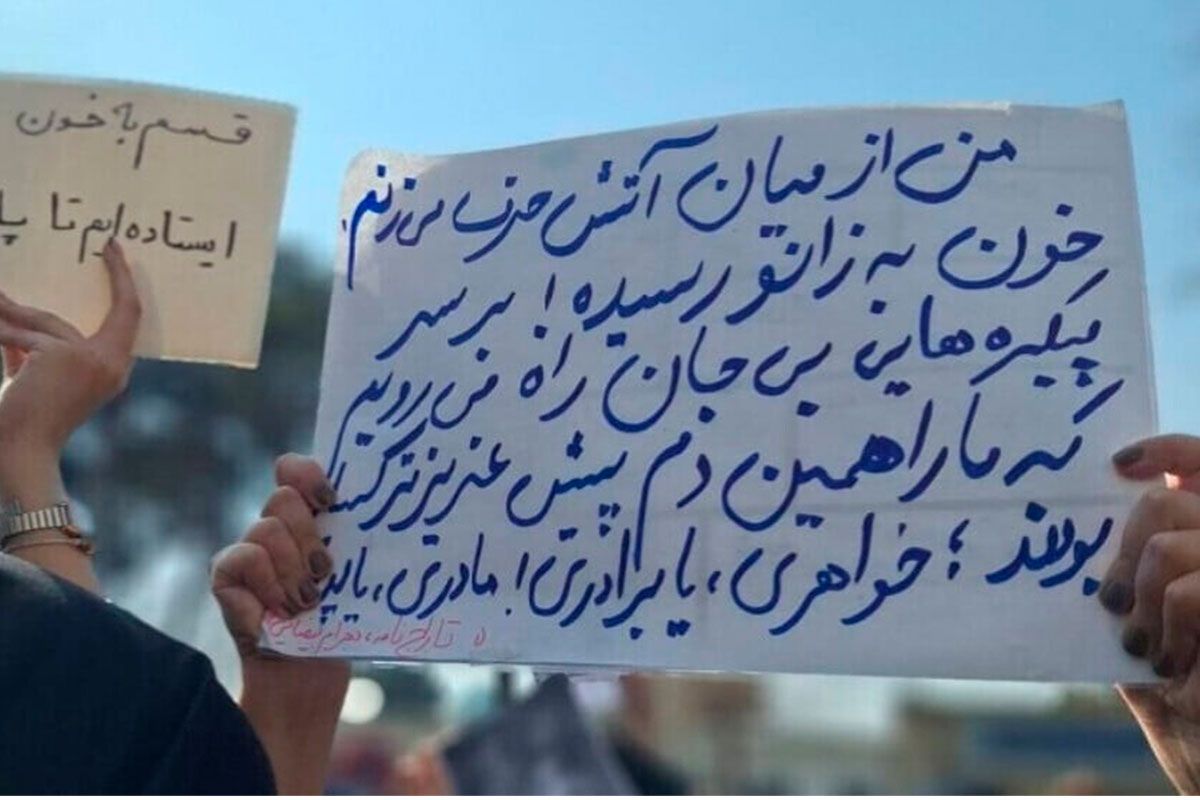 قسم به خون
ایستاده ایم تا پا
من از میان آتش حرف می‌زنم.
خون به زانو رسیده! بر سر
پیکره هایی بی جان راه می رویم
که ما را همین دم پیش عزیزتر کسان
بودند؛ خواهری، یا برادری! مادری، یا پدر
تاراج نامه، بهرام بیضایی